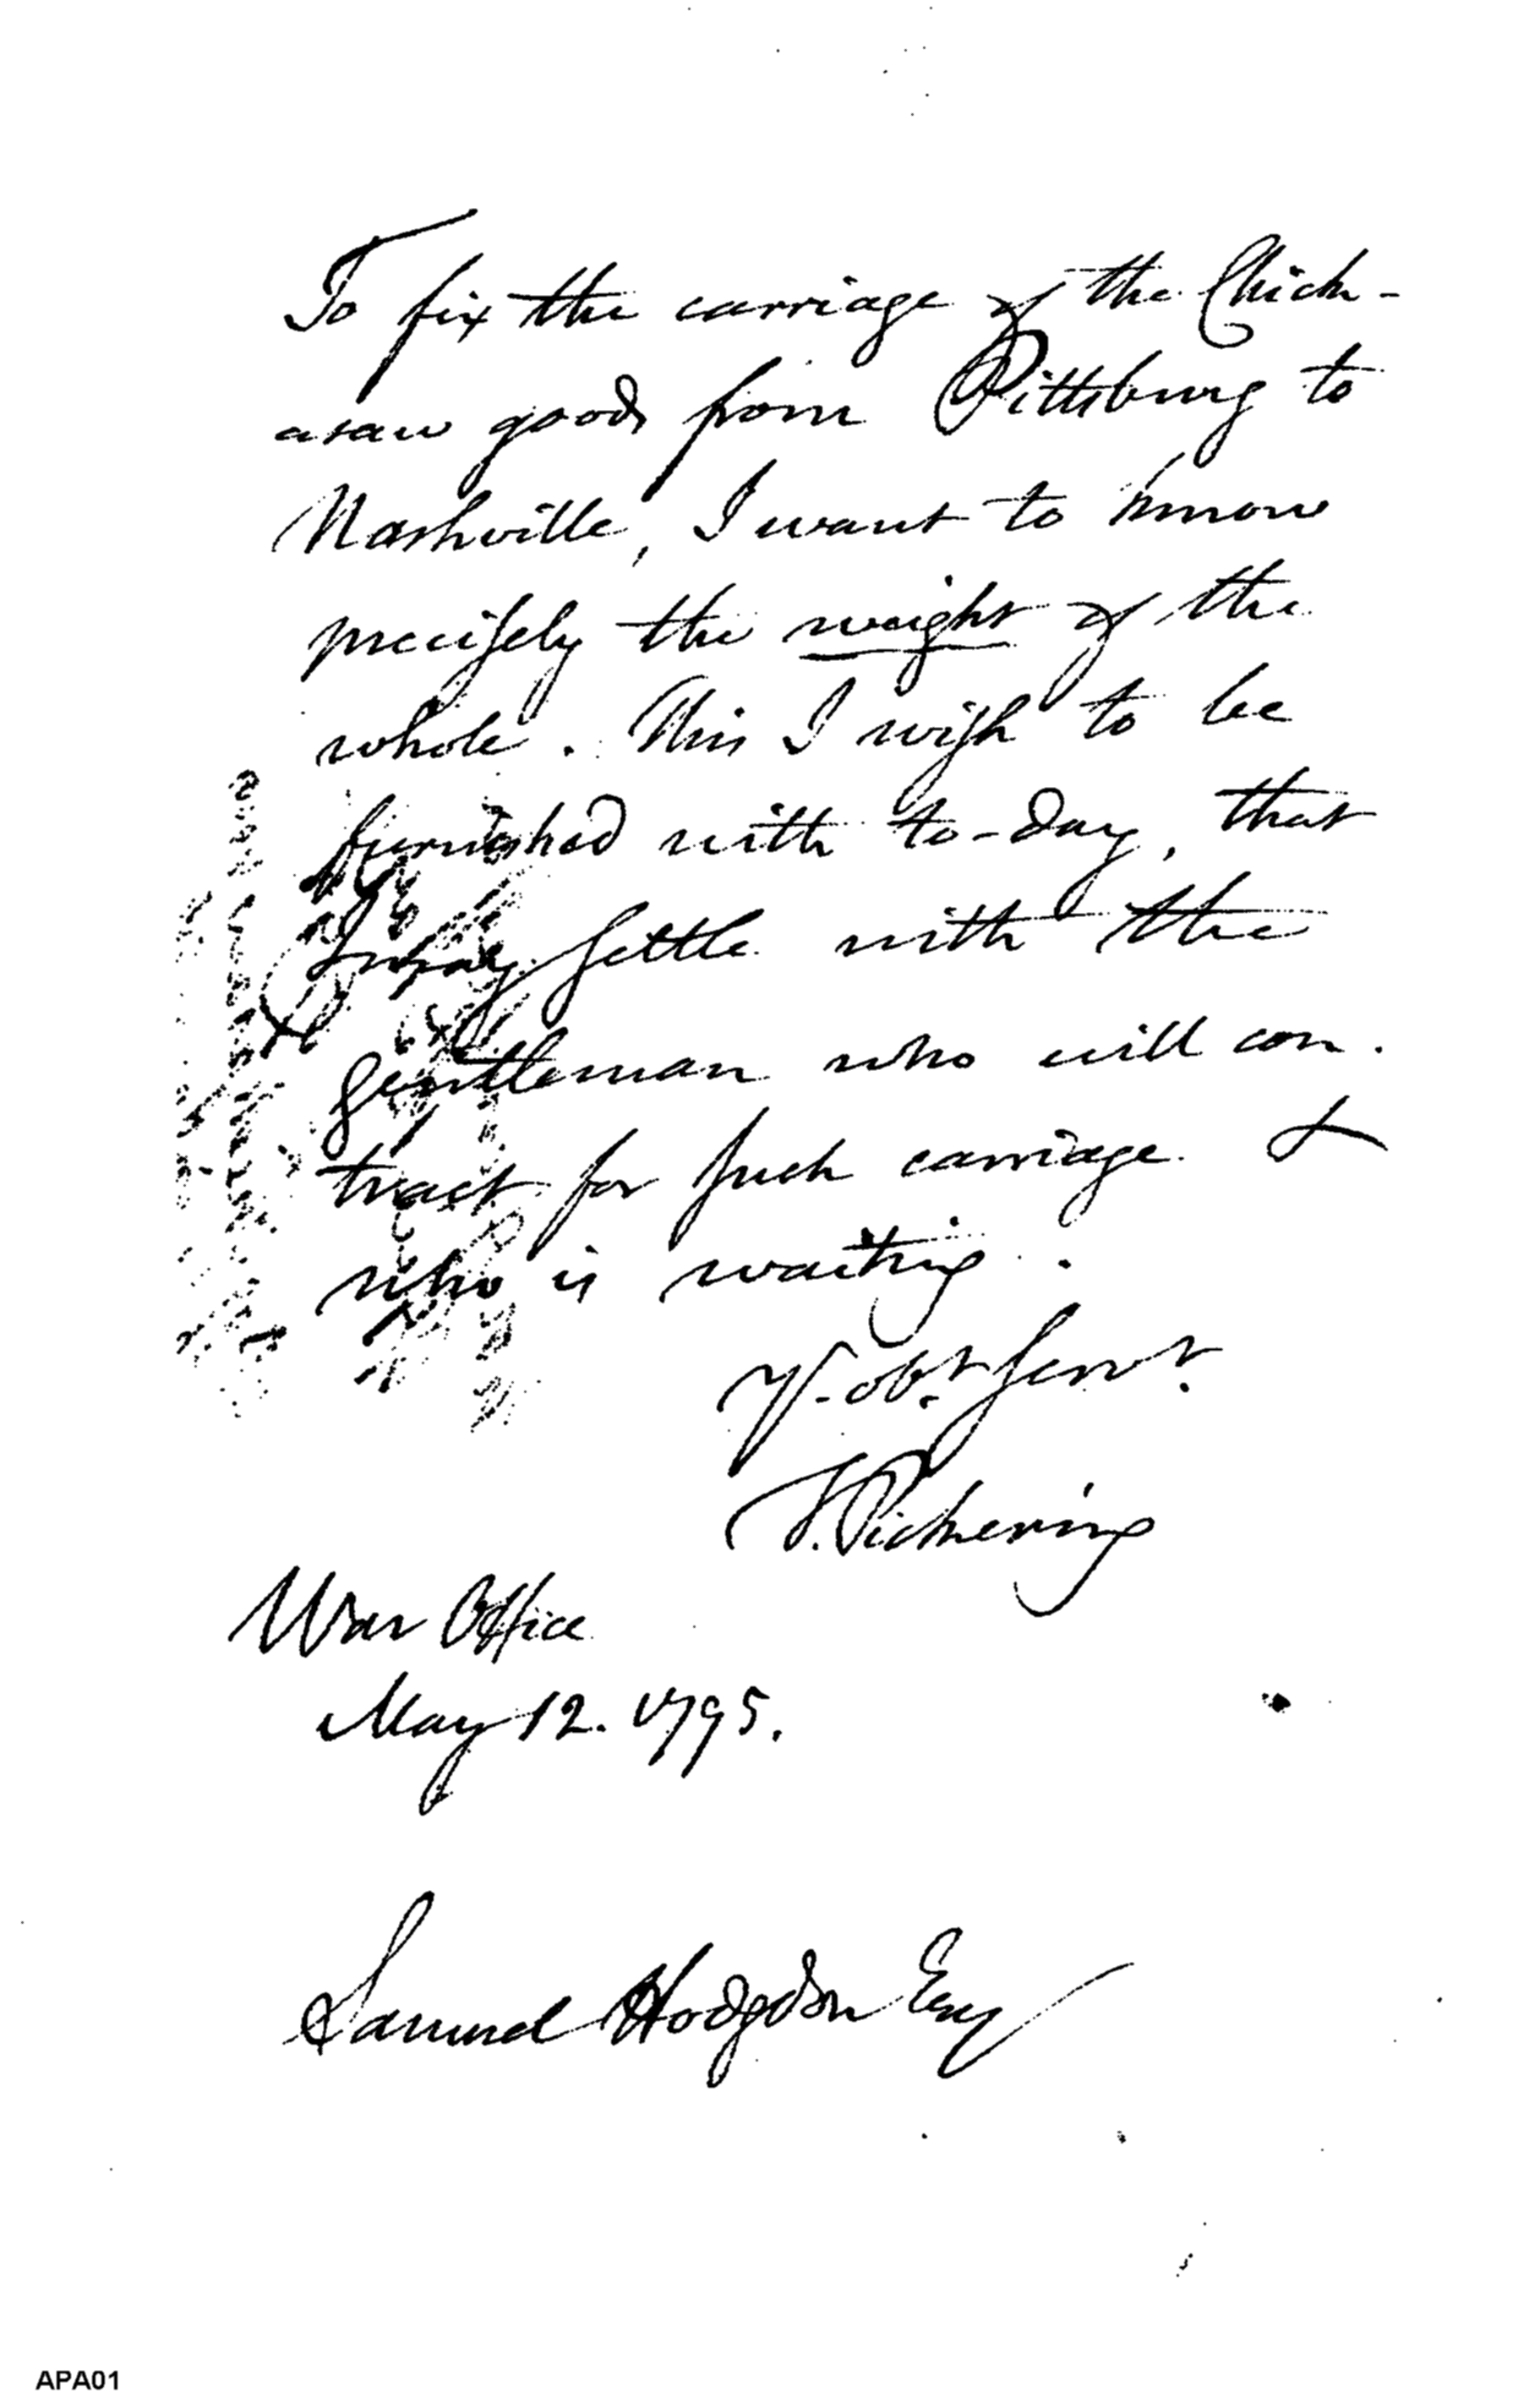 To fix the carriage of the Chick-
asaw goods from Pittsburg to
Nashville, I want to know
precisely the weight of the
whole. This I wish to be
furnished with to-day, that
I may settle with the
gentleman who will con-
tract for such carriage &
who is waiting.
Y. obt. servt.
T. Pickering
War Office
May 12. 1795.
Samuel Hodgdon Esq
APA01